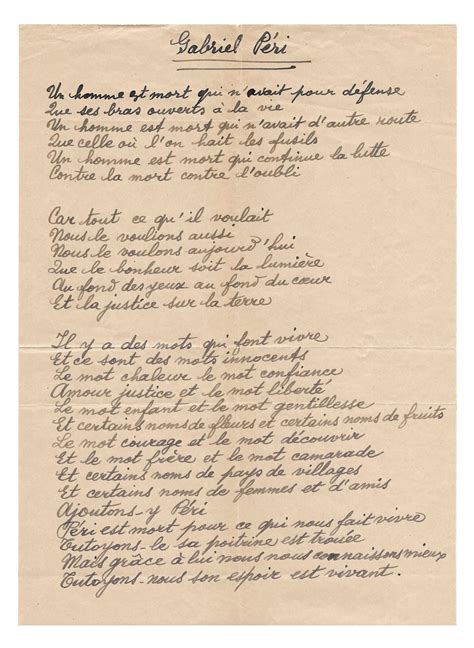 Gabriel Péri
Un homme est mort qui n'avait pour défense
Que ses bras ouverts à la vie
Un homme est mort qui n'avait d'autre route
Que celle où l'on hait les fusils
Un homme est mort qui continue la lutte
Contre la mort contre l'oubli
Car tout ce qu'il voulait
Nous le voulions aussi
Nous le voulons aujourd'hui
Que le bonheur soit la lumière
Au fond des yeux au fond du cœur
Et la justice sur la terre
Il y a des mots qui font vivre
Et ce sont des mots innocents
Le mot chaleur le mot confiance
Amour justice et le mot liberté
Le mot enfant et le mot gentillesse
Et certains noms de fleurs et certains noms de fruits
Le mot courage et le mot découvrir
Et le mot frère et le mot camarade
Et certains noms de pays de villages
Et certains noms de femmes et d'amis
Ajoutons-y Péri
Péri est mort pour ce qui nous fait vivre
Tutoyons-le sa poitrine est trouée
Mais grâce à lui nous nous connaissons mieux
Tutoyons-nous son espoir est vivant.